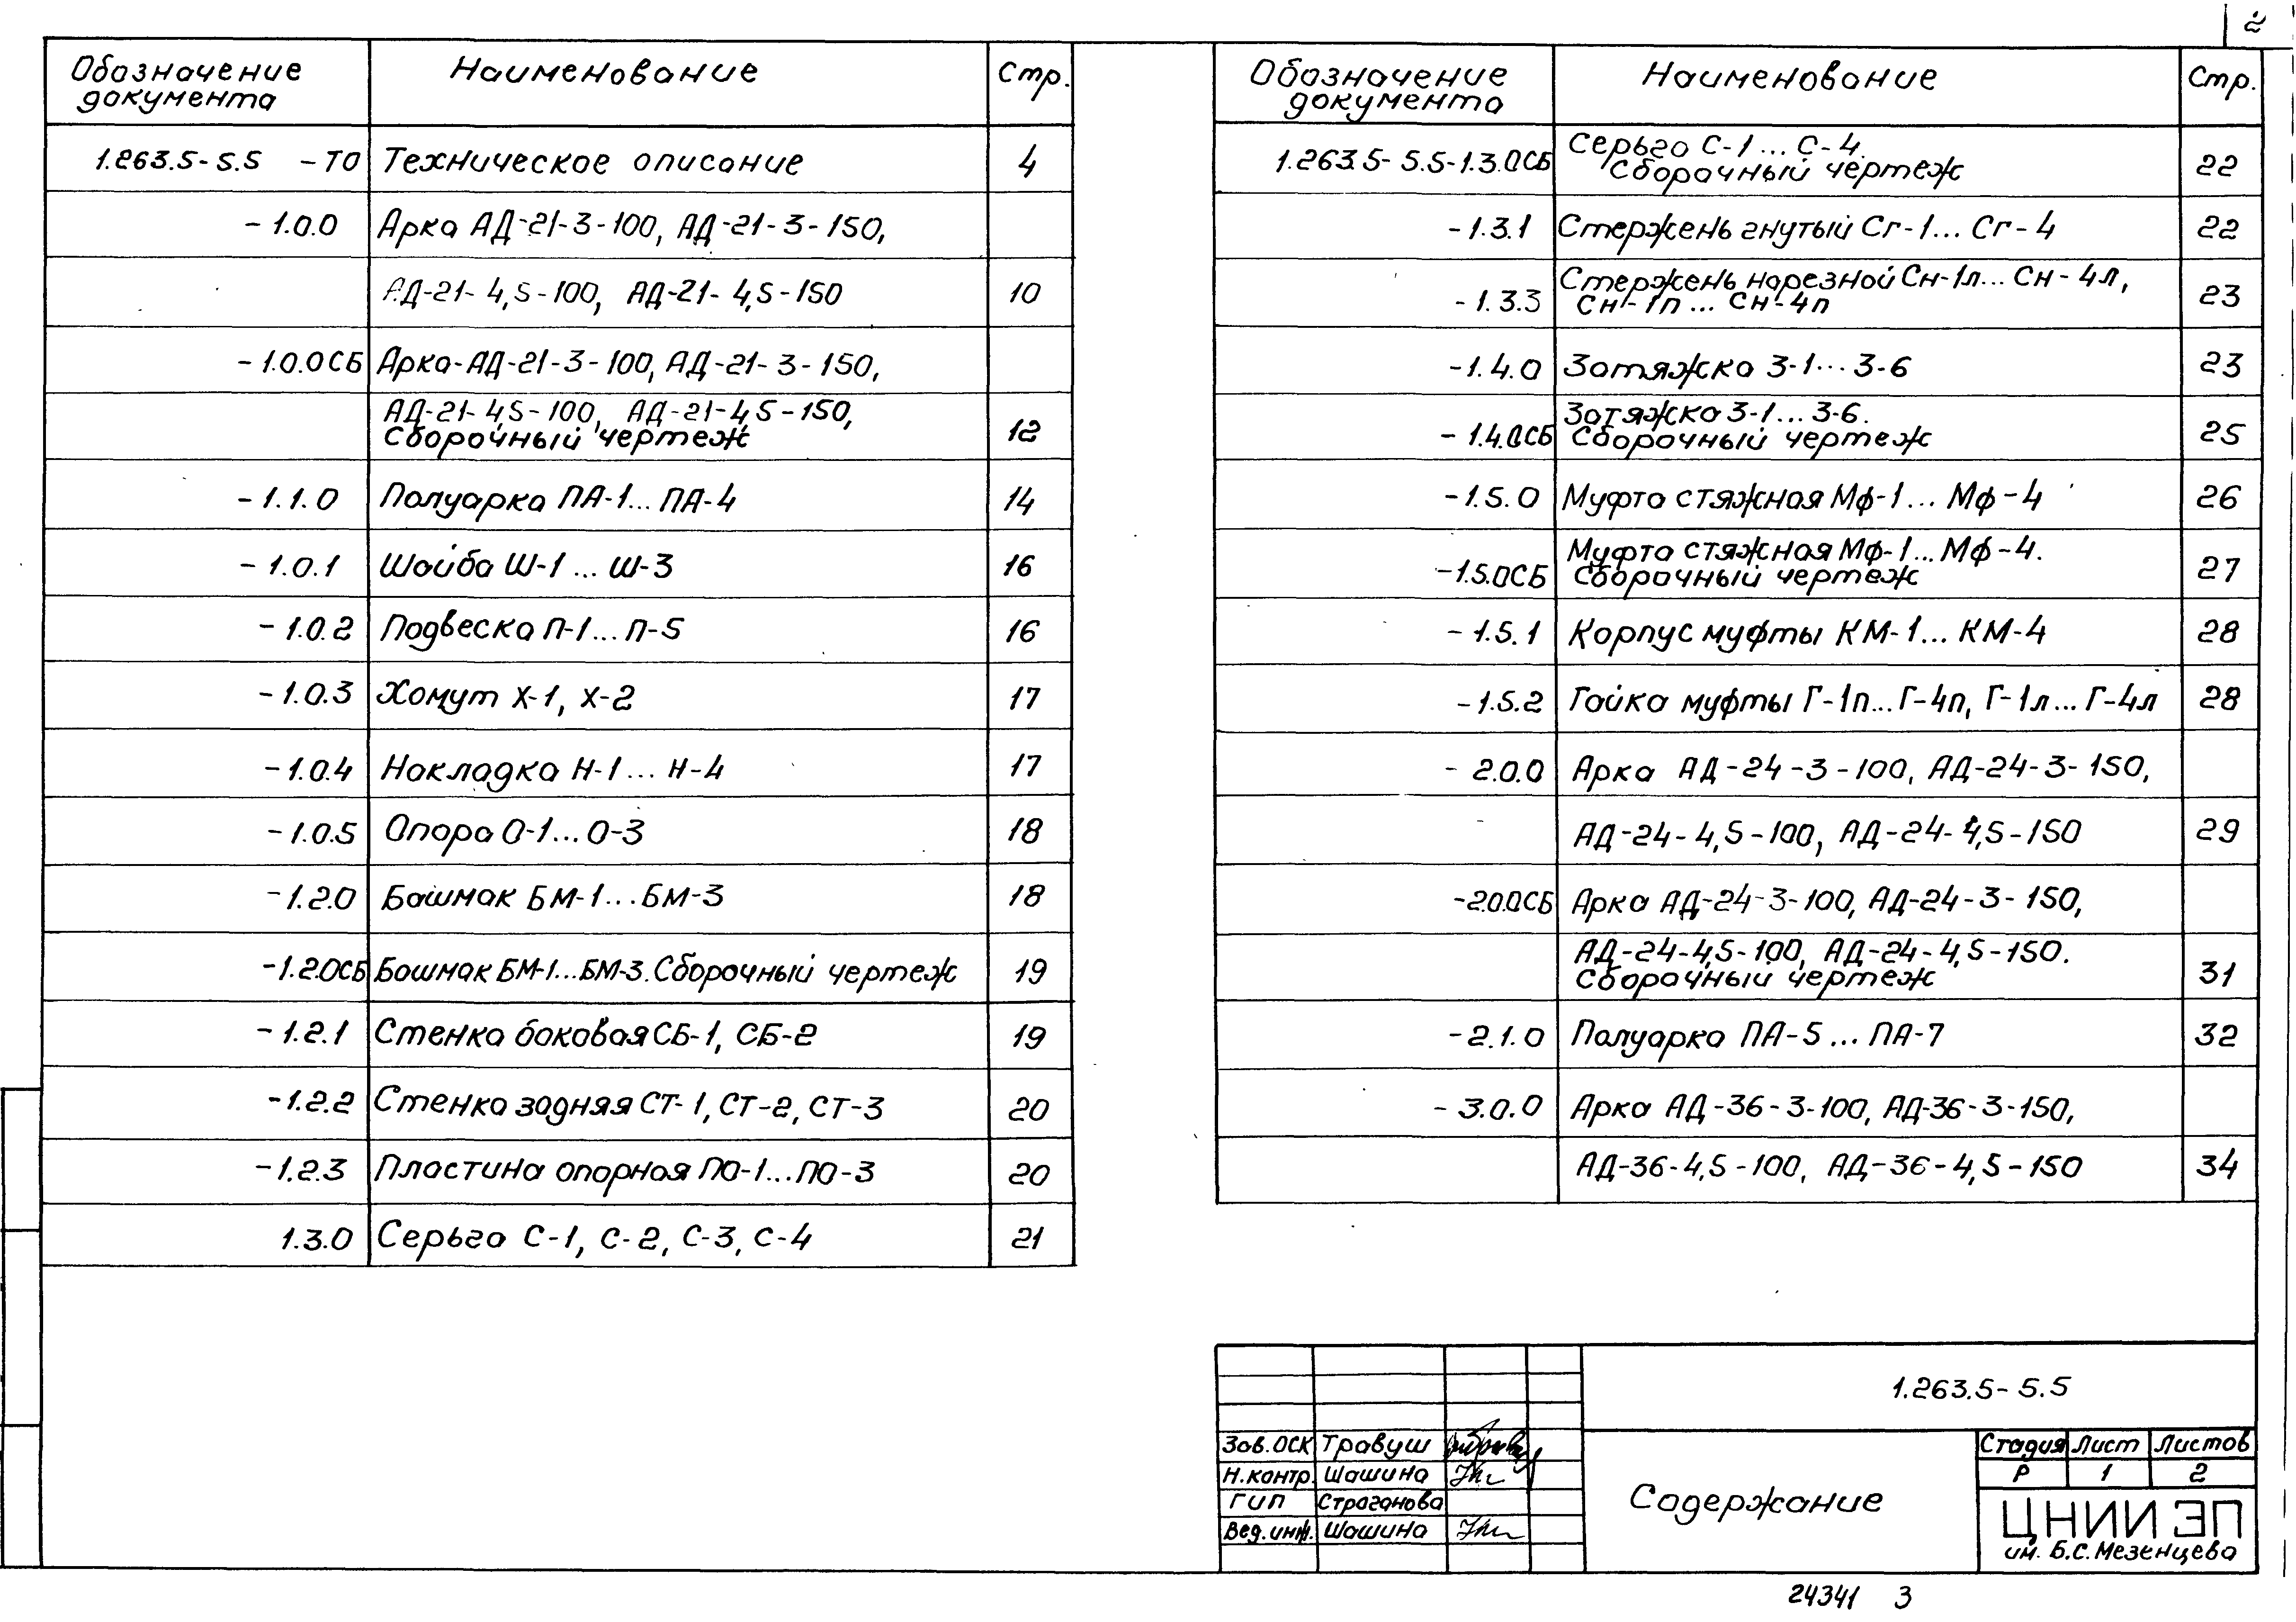 2
Обозначение документа Наименование Стр.
1.263.5-5.5 -ТО Техническое описание 4
-1.0.0 Арка АД-21-3-100, АД-21-3-150,
АД-21-4,5-100, АД-21-4,5-150 10
-1.0.0СБ Арка-АД-21-3-100, АД-21-3-150,
АД-21-4,5-100, АД-21-4,5-150,
Сборочный чертеж 12
-1.1.0 Полуарка ПА-1...ПА-4 14
-1.0.1 Шайба Ш-1...Ш-3 16
-1.0.2 Подвеска П-1...П-5 16
-1.0.3 Хомут Х-1, Х-2 17
-1.0.4 Накладка Н-1...Н-4 17
-1.0.5 Опора О-1...О-3 18
-1.2.0 Башмак БМ-1...БМ-3 18
-1.2.0СБ Башмак БМ-1...БМ-3. Сборочный чертеж 19
-1.2.1 Стенка боковая СБ-1, СБ-2 19
-1.2.2 Стенка задняя СТ-1, СТ-2, СТ-3 20
-1.2.3 Пластина опорная ПО-1...ПО-3 20
1.3.0 Серьга С-1, С-2, С-3, С-4 21
Обозначение документа Наименование Стр.
1.263.5-5.5-1.3.0СБ Серьга С-1...С-4.
Сборочный чертеж 22
-1.3.1 Стержень гнутый Сг-1...Сг-4 22
Стержень нарезной Сн-1л...Сн-4л,
-1.3.3 Сн-1п...Сн-4п 23
-1.4.0 Затяжка З-1...З-6 23
Затяжка З-1...З-6.
-1.4.0СБ Сборочный чертеж 25
-1.5.0 Муфта стяжная Мф-1...Мф-4 26
Муфта стяжная Мф-1...Мф-4.
-1.5.0СБ Сборочный чертеж 27
-1.5.1 Корпус муфты КМ-1...КМ-4 28
-1.5.2 Гайка муфты Г-1п...Г-4п, Г-1л...Г-4л 28
-2.0.0 Арка АД-24-3-100, АД-24-3-150,
АД-24-4,5-100, АД-24-4,5-150 29
-2.0.0СБ Арка АД-24-3-100, АД-24-3-150,
АД-24-4,5-100, АД-24-4,5-150.
Сборочный чертеж 31
-2.1.0 Полуарка ПА-5...ПА-7 32
-3.0.0 Арка АД-36-3-100, АД-36-3-150,
АД-36-4,5-100, АД-36-4,5-150 34
1.263.5-5.5
Зав.ОСК Травуш
Н.контр. Шашина
ГИП Страганова
Вед.инж. Шашина
Содержание
Стадия Лист Листов
Р 1 2
ЦНИИЭП
им. Б.С.Мезенцева
24341 3